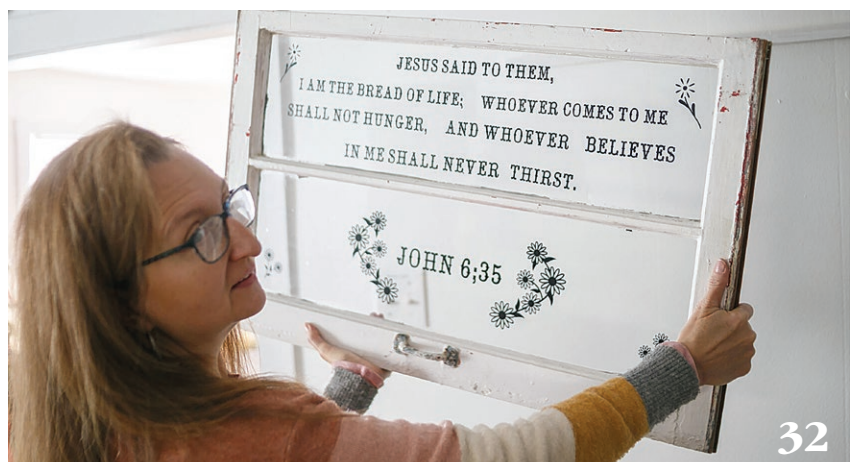 JESUS SAID TO THEM,
I AM THE BREAD OF LIFE; WHOEVER COMES TO ME
SHALL NOT HUNGER, AND WHOEVER BELIEVES
IN ME SHALL NEVER THIRST.
JOHN 6;35
32